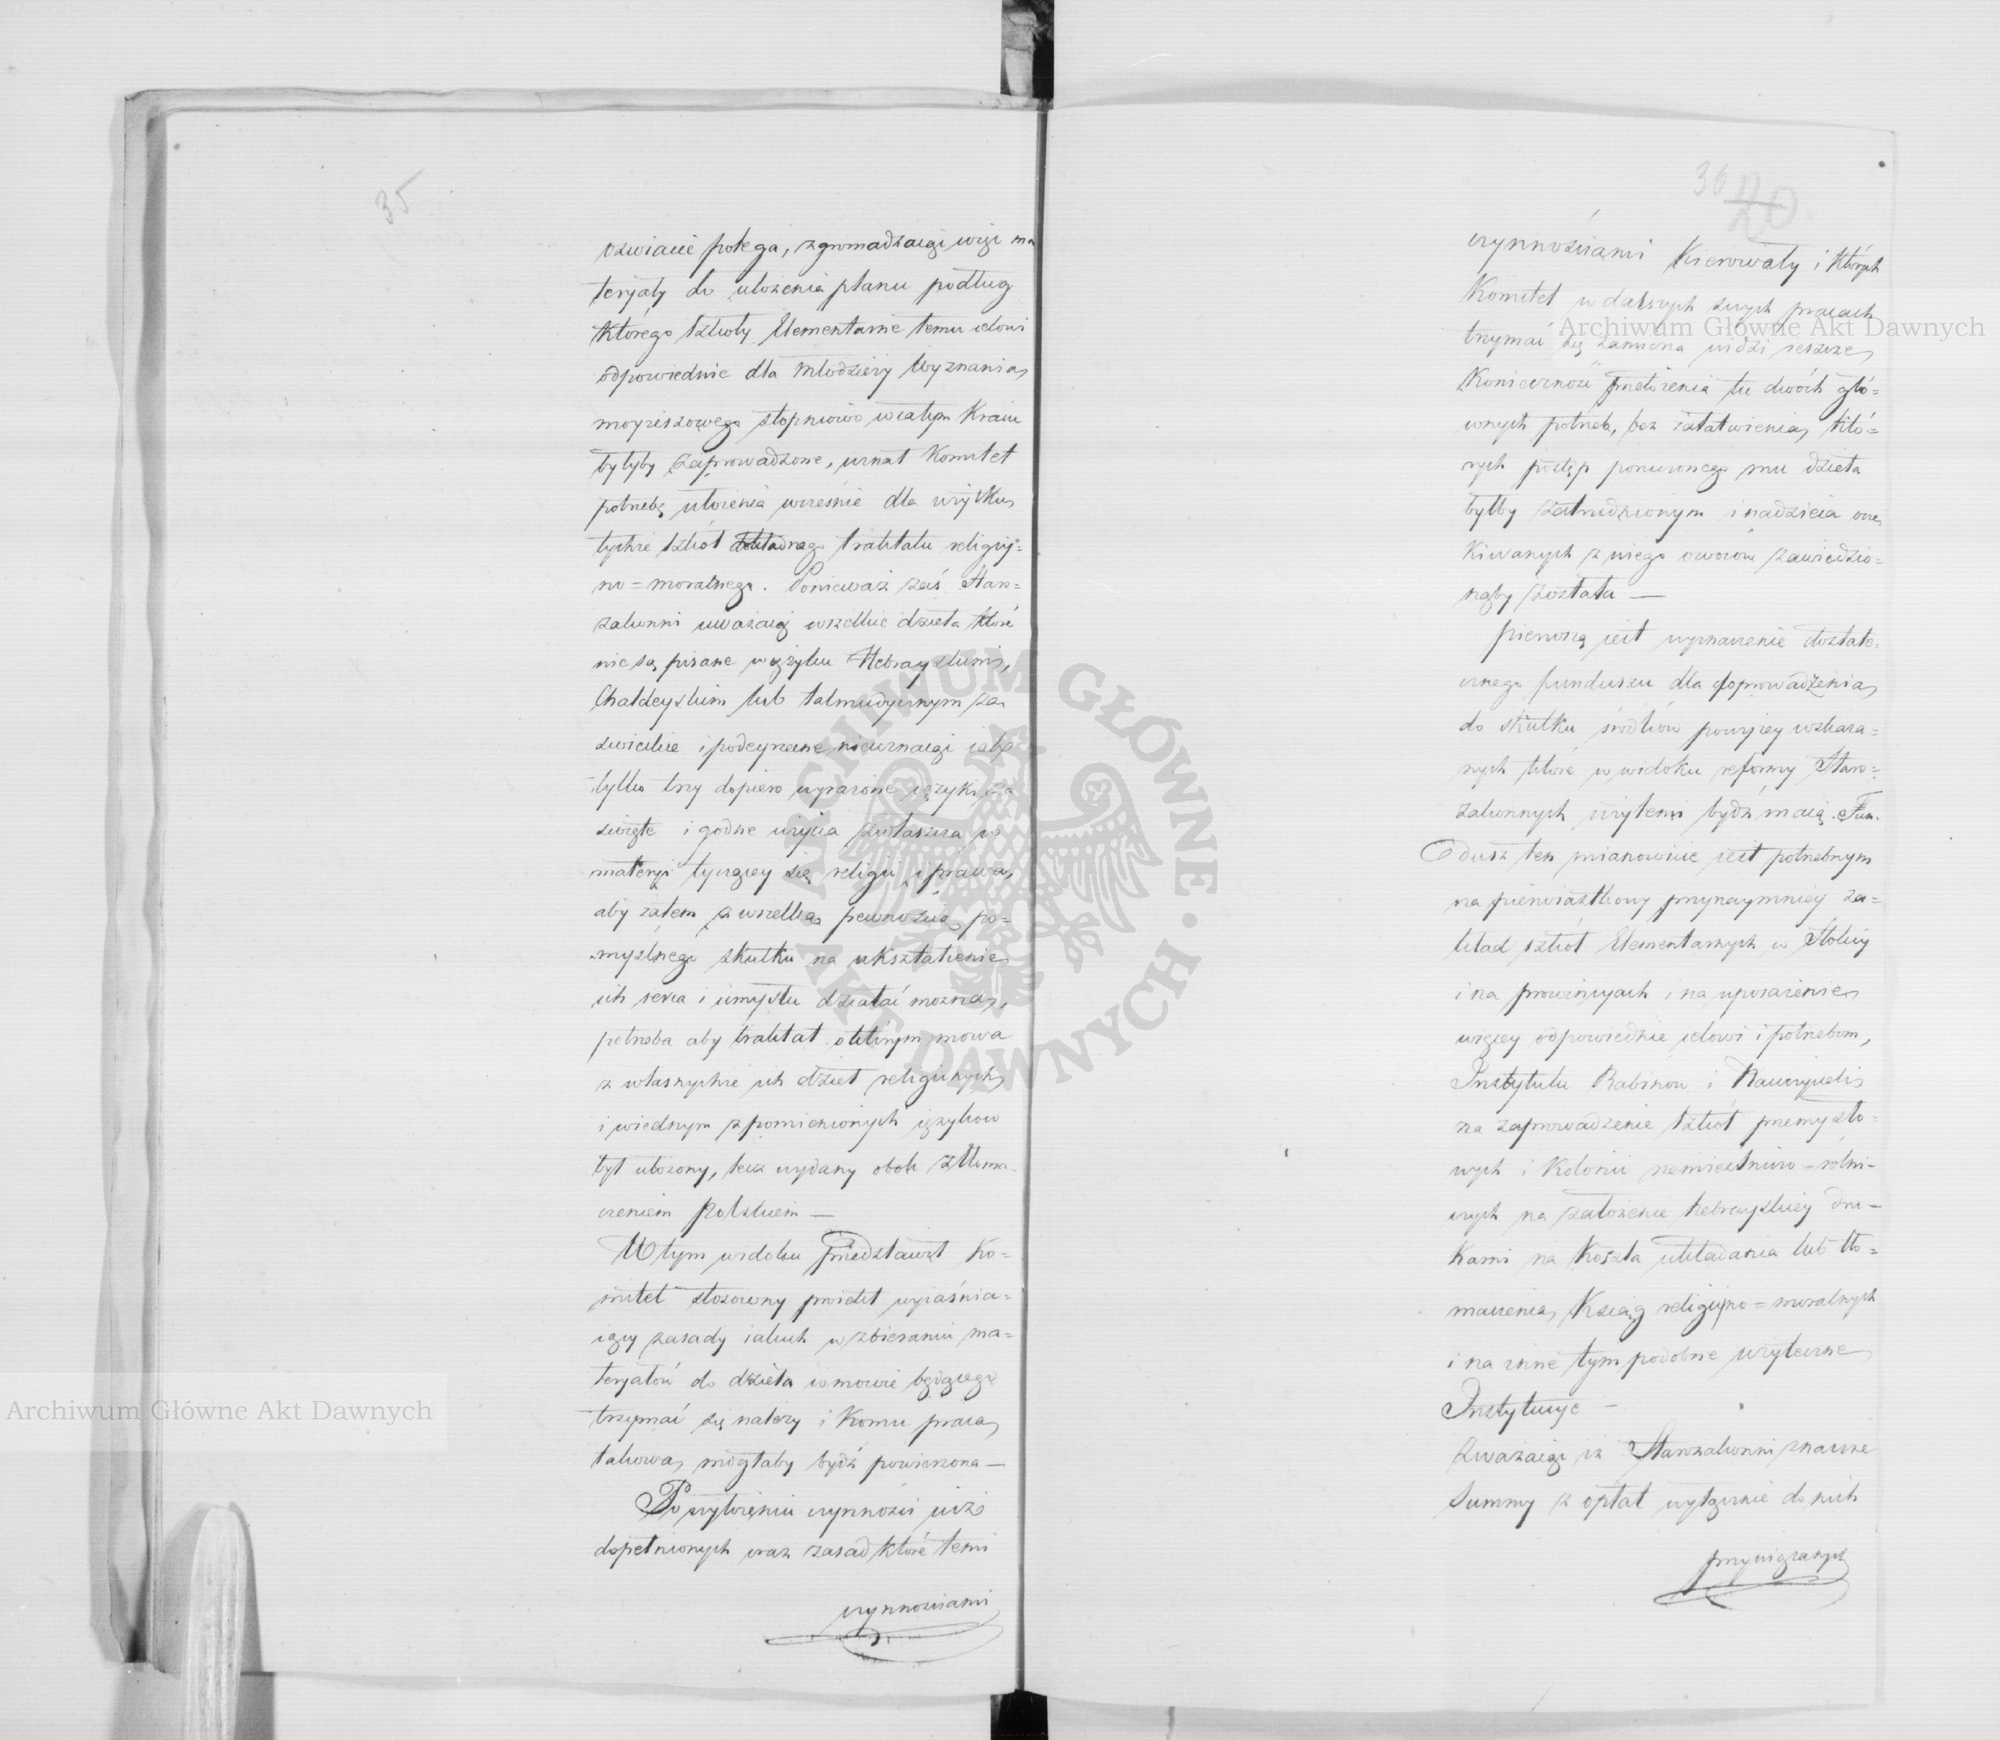 35
oświacie polega, zgromadzaiąc więc ma
teryały do ułożenia planu podług
którego szkoły Elementarne temu celowi
odpowiednie dla młodzieży Wyznania
moyżeszowego stopniowo w całym Kraiu
byłyby zaprowadzone, uznał Komitet
potrzebę ułożenia wcześnie dla użytku
tychże szkół dokładnego traktatu religiy=
no=moralnego. Ponieważ zaś Staro=
zakonni uważaią wszelkie dzieła które
nie są pisane w ięzyku Hebrayskim,
Chaldeyskim lub talmudycznym za
świeckie i podeyrzane nieuznaiąc iak
tylko trzy dopiero wyrażone ięzyki za
święte i godne użycia zwłaszcza w
materyi tyczącey się religii i prawa,
aby zatem z wszelką pewnością po=
myślnego skutku na ukształcenie
ich serca i umysłu działać można,
potrzeba aby traktat o którym mowa
z własnychże ich dzieł religiynych
i w iednym z pomienionych ięzyków
był ułożony, lecz wydany obok z tłuma
czeniem Polskiem —
W tym widoku przedstawił Ko=
mitet stosowny proiekt wyiaśnia=
iący zasady iakich w zbieraniu ma=
teryałów do dzieła w mowie będącego
trzymać się należy i komu praca
takowa mogłaby bydź powierzona —
Po wyłożeniu czynności iuż
dopełnionych oraz zasad które temi
czynnościami
36
20
czynnościami kierowały i których
Komitet w dalszych swych pracach
trzymać się zamierza widzi ieszcze
Konieczność przełożenia tu dwóch głó=
wnych potrzeb, bez załatwienia któ=
rych postęp poruczonego mu dzieła
byłby zatrudnionym i nadzieia ocze
kiwanych z niego owoców zawiedzio=
nąby została —
pierwszą iest wyznaczenie dostate=
cznego funduszu dla doprowadzenia
do skutku środków powyżey wskaza=
nych które w widoku reformy Staro=
zakonnych użytemi bydź maią. Fun
dusz ten mianowicie iest potrzebnym
na pierwiastkowy przynaymniey za=
kład szkół Elementarnych w Stolicy
i na prowincyach, na uposażenie
więcey odpowiednie celowi i potrzebom,
Instytutu Rabinów i Nauczycieli,
na zaprowadzenie szkół przemysło=
wych i Kolonii rzemieślniczo-rolni-
czych na założenie hebrayskiey dru-
karni na Koszta układania lub tło=
maczenia Ksiąg religiyno=moralnych
i na inne tym podobne użyteczne
Instytucye —
Zważaiąc iż Starozakonni znaczne
Summy z opłat wyłącznie do nich
przywiązanych
Archiwum Główne Akt Dawnych
Archiwum Główne Akt Dawnych
ARCHIWUM GŁÓWNE · AKT DAWNYCH ·